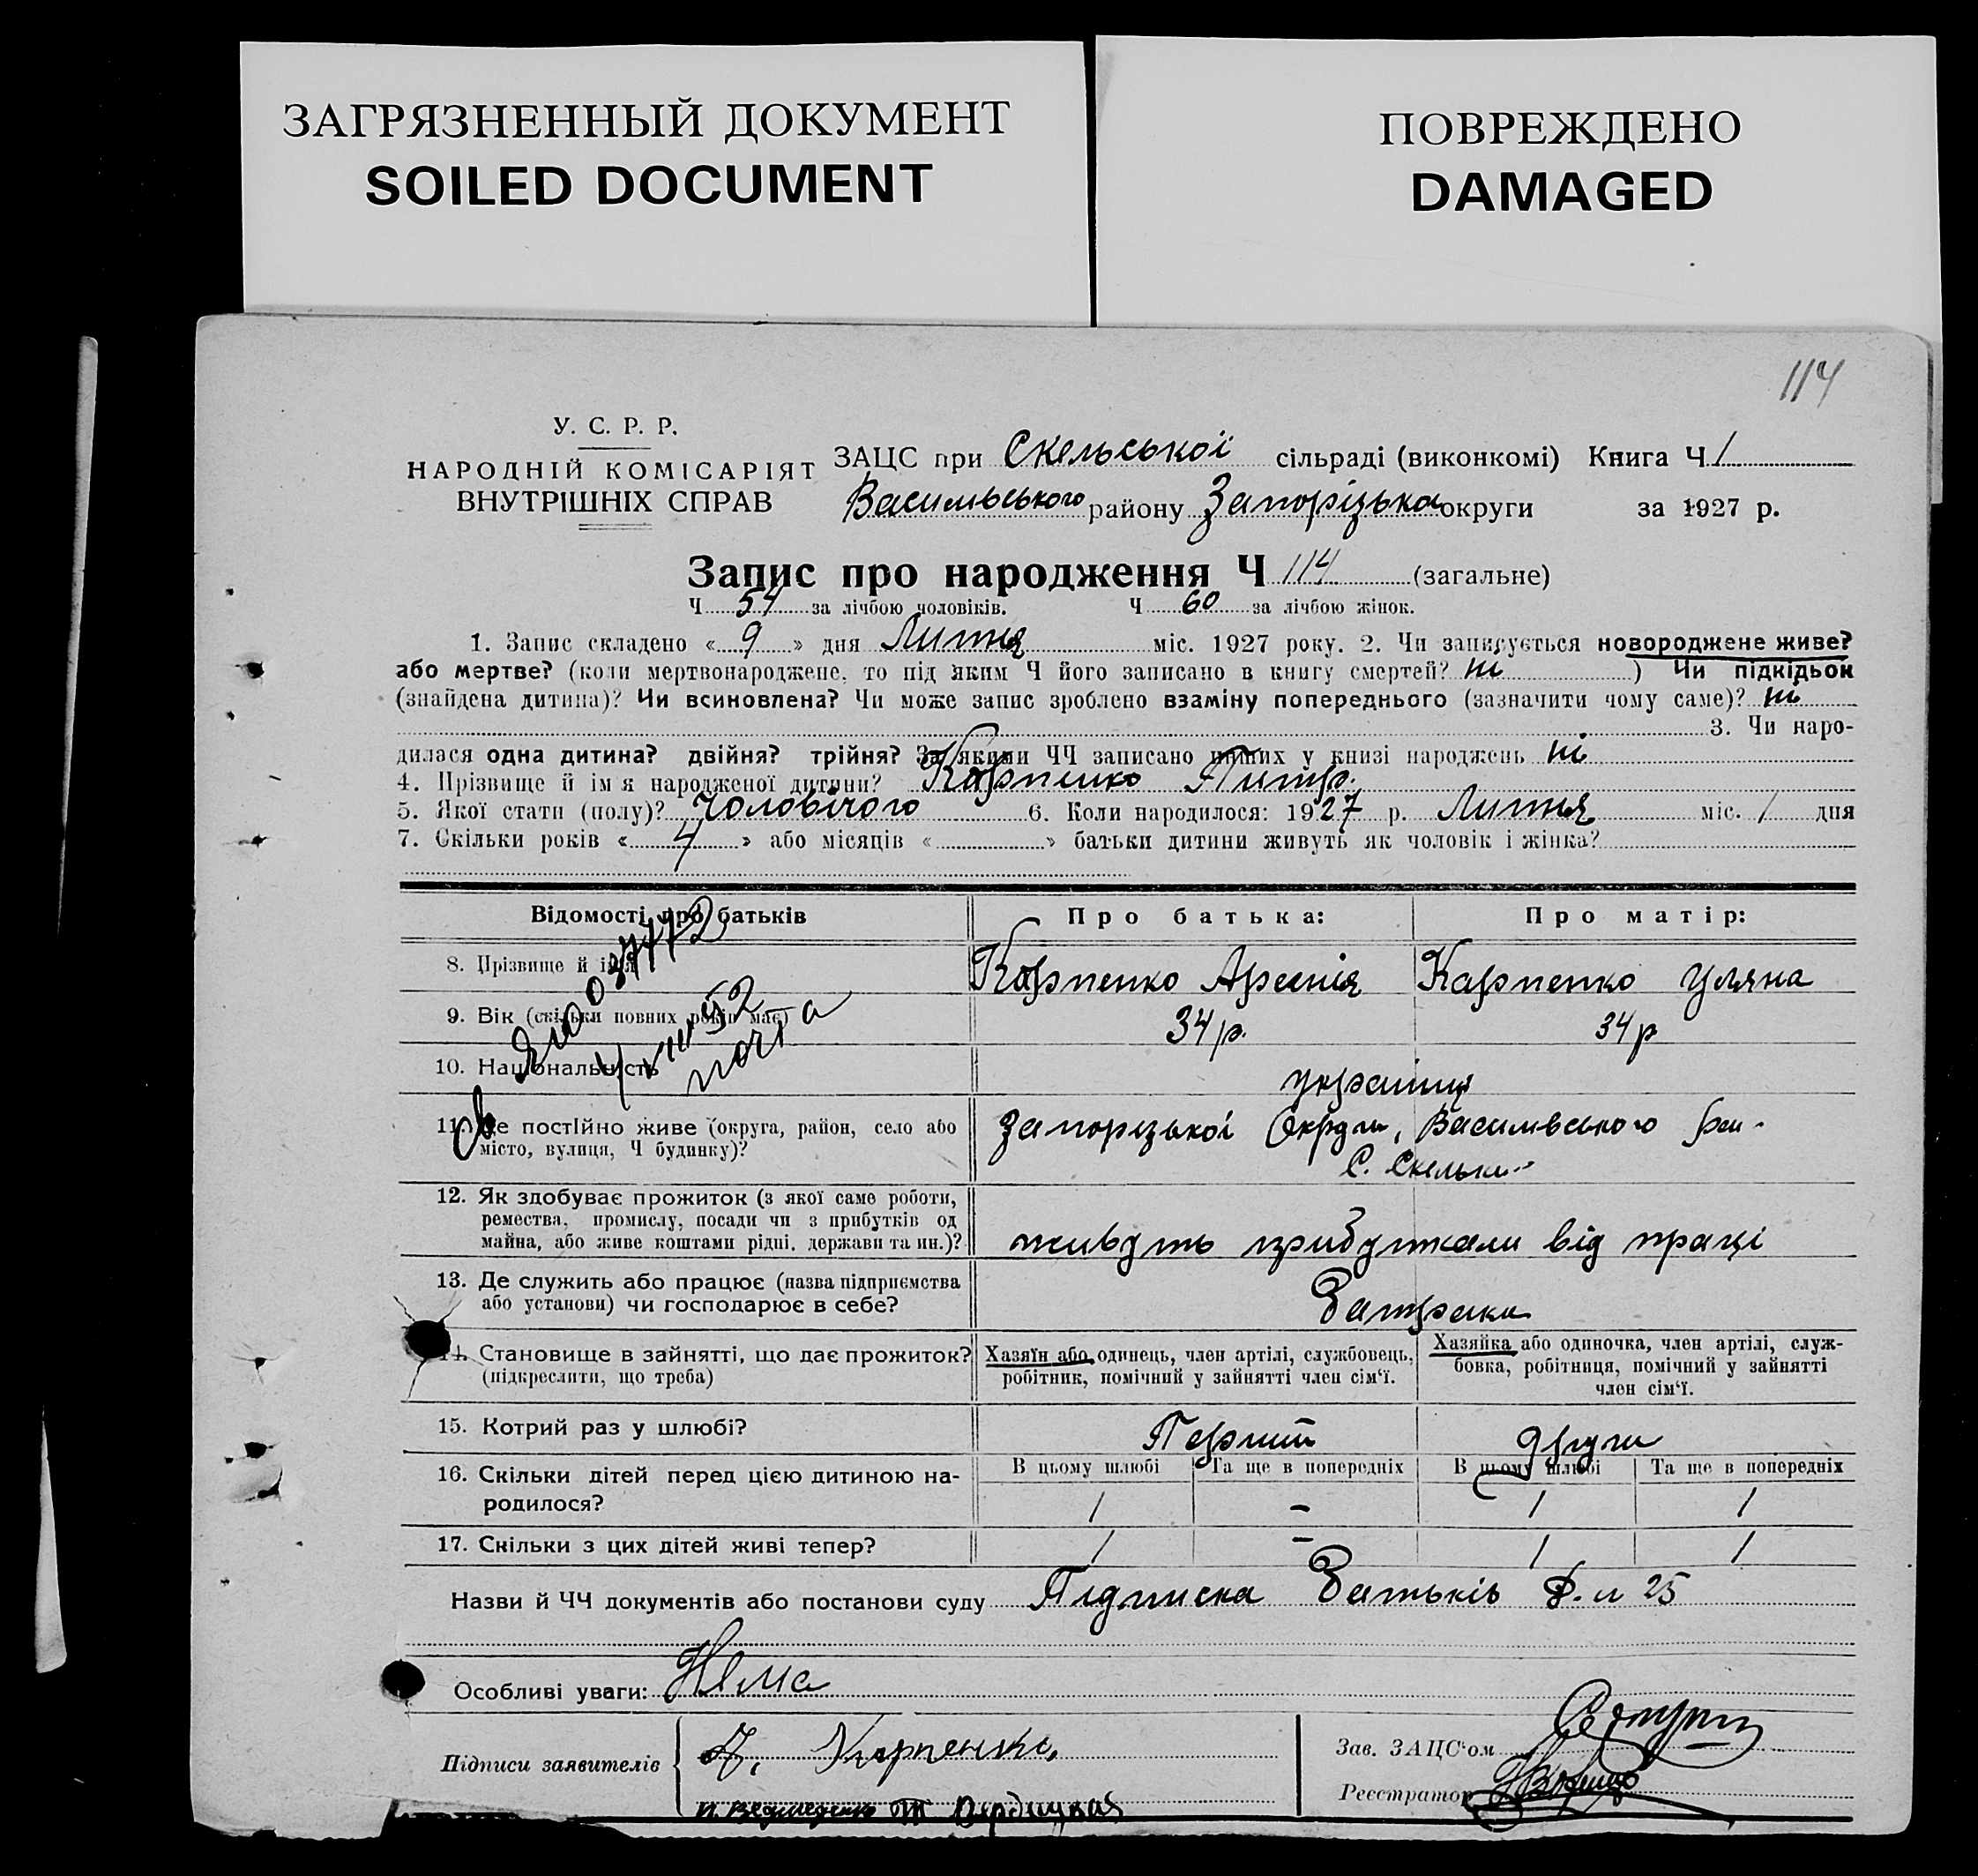 ЗАГРЯЗНЕННЫЙ ДОКУМЕНТ
SOILED DOCUMENT
ПОВРЕЖДЕНО
DAMAGED
114
У. С. Р. Р.
НАРОДНІЙ КОМІСАРІЯТ
ВНУТРІШНІХ СПРАВ
ЗАЦС при Скельської сільраді (виконкомі) Книга Ч 1
Васильвського району Запоріцька округи за 1927 р.
Запис про народження Ч 114 (загальне)
Ч 54 за лічбою чоловіків. Ч 60 за лічбою жінок.
1. Запис складено « 9 » дня Липня міс. 1927 року. 2. Чи записується новороджене живе?
або мертве? (коли мертвонароджене, то під яким Ч його записано в книгу смертей? ні ) Чи підкідьок
(знайдена дитина)? Чи всиновлена? Чи може запис зроблено взаміну попереднього (зазначити чому саме)? ні
3. Чи наро-
дилася одна дитина? двійня? трійня? За якими ЧЧ записано інших у книзі народжень ні
4. Прізвище й ім'я народженої дитини? Карпенко Питр.
5. Якої стати (полу)? Чоловічого 6. Коли народилося: 1927 р. Липня міс. 1 дня
7. Скільки років « 4 » або місяців « » батьки дитини живуть як чоловік і жінка?
Відомості про батьків
Про батька:
Про матір:
8. Прізвище й ім'я
Карпенко Арсенія
Карпенко Уляна
9. Вік (скільки повних років має)
34 р.
34 р
почта
10. Національність
українці
11. Де постійно живе (округа, район, село або
місто, вулиця, Ч будинку)?
Запорізької Округи, Васильвського рай.
С. Скельки
12. Як здобуває прожиток (з якої саме роботи,
ремества, промислу, посади чи з прибутків од
майна, або живе коштами рідні, держави та ин.)?
живуть прибутками від праці
13. Де служить або працює (назва підприємства
або установи) чи господарює в себе?
Батраки
14. Становище в зайнятті, що дає прожиток?
(підкреслити, що треба)
Хазяїн або одинець, член артілі, службовець,
робітник, помічний у зайнятті член сім'ї.
Хазяйка або одиночка, член артілі, служ-
бовка, робітниця, помічний у зайнятті
член сім'ї.
15. Котрий раз у шлюбі?
Перший
други
16. Скільки дітей перед цією дитиною на-
родилося?
В цьому шлюбі
Та ще в попередніх
В цьому шлюбі
Та ще в попередніх
1 – 1 1
17. Скільки з цих дітей живі тепер?
1 – 1 1
Назви й ЧЧ документів або постанови суду Підписка Батьків Ф. и 25
Особливі уваги: Нема
Підписи заявителів
Карпенко
Зав. ЗАЦС'ом
Реєстратор